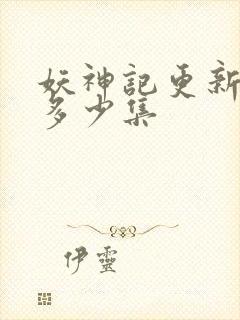 妖神記更新
多少集
伊靈